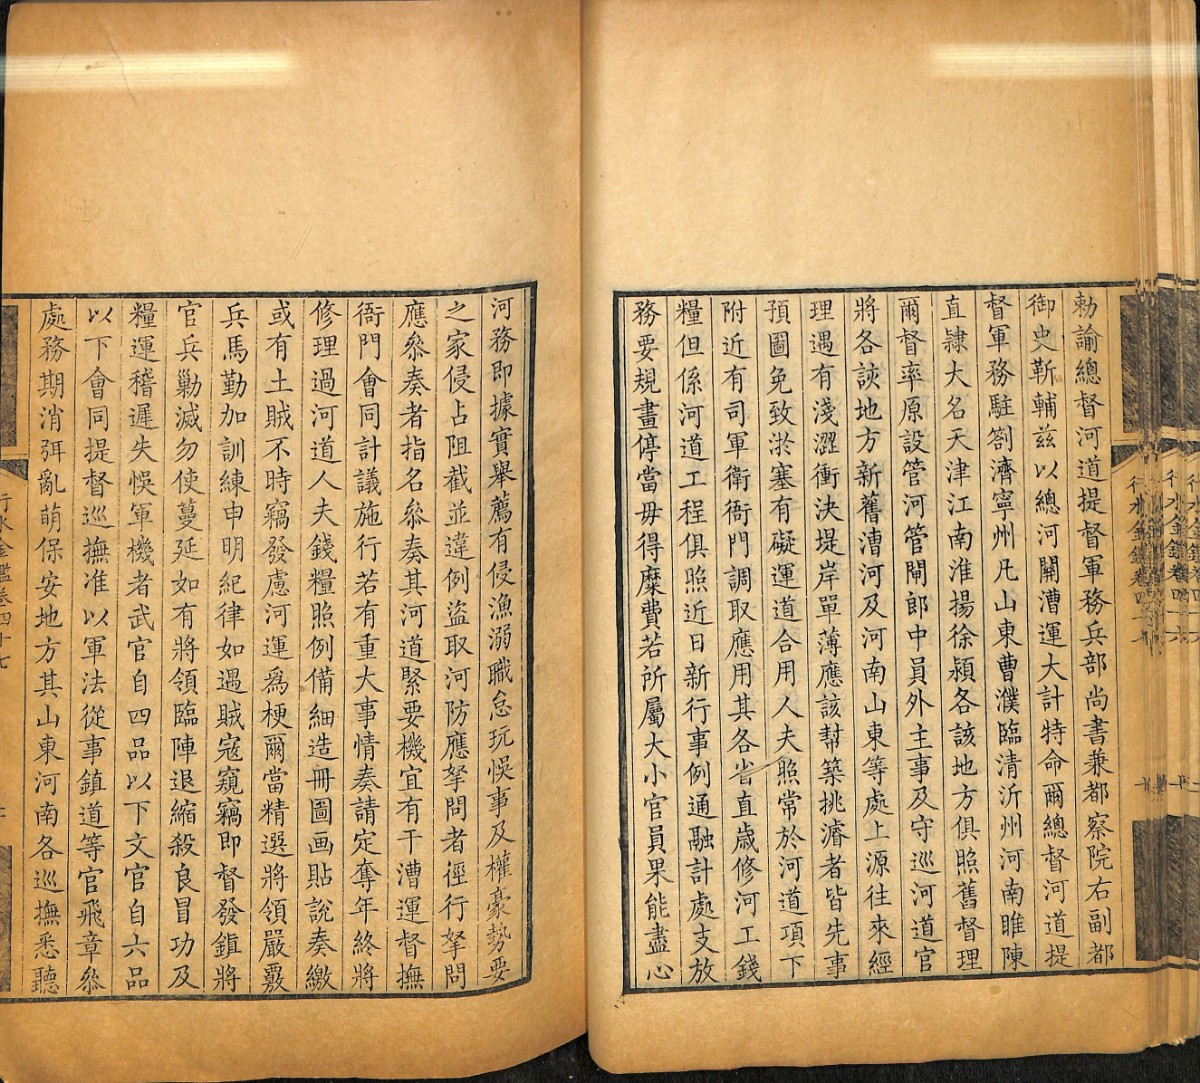 勅諭總督河道提督軍務兵部尚書兼都察院右副都
御史靳輔茲以總河關漕運大計特命爾總督河道提
督軍務駐劄濟寧州凡山東曹濮臨清沂州河南睢陳
直隸大名天津江南淮揚徐潁各該地方俱照舊督理
爾督率原設管河管閘郎中員外主事及守巡河道官
將各該地方新舊漕河及河南山東等處上源往來經
理遇有淺澀衝決堤岸單薄應該幇築挑濬者皆先事
預圖免致淤塞有礙運道合用人夫照常於河道項下
附近有司軍衛衙門調取應用其各省直歲修河工錢
糧但係河道工程俱照近日新行事例通融計處支放
務要規畫停當毋得糜費若所屬大小官員果能盡心
河務即據實舉薦有侵漁溺職怠玩悞事及權豪勢要
之家侵占阻截並違例盜取河防應拏問者徑行拏問
應叅奏者指名叅奏其河道緊要機宜有干漕運督撫
衙門會同計議施行若有重大事情奏請定奪年終將
修理過河道人夫錢糧照例備細造冊圖画貼說奏繳
或有土賊不時竊發慮河運為梗爾當精選將領嚴覈
兵馬勤加訓練申明紀律如遇賊寇窺竊即督發鎮將
官兵勦滅勿使蔓延如有將領臨陣退縮殺良冒功及
糧運稽遲失悞軍機者武官自四品以下文官自六品
以下會同提督巡撫准以軍法從事鎮道等官飛章叅
處務期消弭亂萌保安地方其山東河南各巡撫悉聽
行水金鑑卷四十七